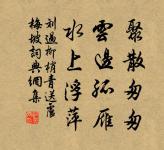 聚散匆匆
雲邊孤雁
水上浮萍
劉過柳梢青送盧
梅坡詞典網集